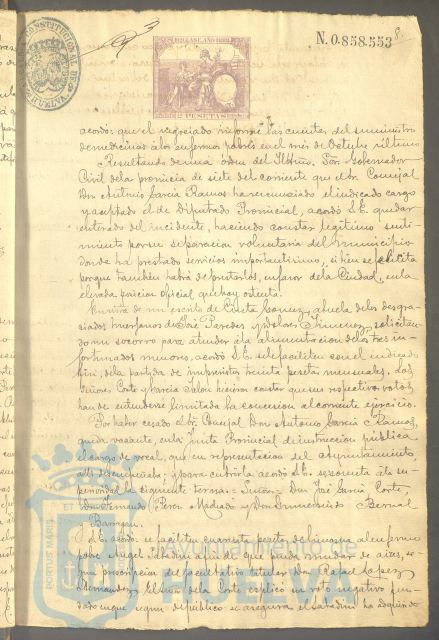 N. 0.858.553
2 PESETAS
acordó: que el negociado informe las cuentas del suministro
de medicinas a los enfermos pobres en el mes de Octubre último
Resultando de una órden del Iltmo. Sor. Gobernador
Civil de la provincia de siete del corriente que el Sr. Concejal
Don Antonio García Ramos ha renunciado el indicado cargo
y aceptado el de Diputado Provincial, acordó S. E. quedar
enterado del incidente, haciendo constar legitimo senti-
miento por su separacion voluntaria del municipio
donde ha prestado servicios importantisimos, si bien se felicita
porque tambien habrá de prestarlos, en favor de la Ciudad, en la
elevada posicion oficial que hoy ostenta.
En vista de un escrito de Gomez, abuela de los desgra-
ciados huerfanos de José Paredes y Dolores Jimenez, solicitan-
do un socorro para atender á la alimentacion de los tres in-
fortunados menores, acordó S. E. se le faciliten con el indicado
fin, de la partida de imprevistos treinta pesetas mensuales. Los
Señores Corte y García Jalon hicieron constar que sus respectivos votos
han de entenderse limitada la concesion al corriente ejercicio.
Por haber cesado el Sr. Concejal Don Antonio García Ramos,
queda vacante, en la Junta Provincial de instruccion pública
el cargo de vocal, que en representacion del Ayuntamiento,
allí desempeñaba; y para cubrirlo acordó S. E. se someta á la su-
perioridad la siguiente terna: Señores Don José García Corte,
Don Fernando Perez Machado y Don Bernal
Barragan.
S. E. acordó se faciliten cuarenta pesetas de limosna al enfermo
pobre Angel Saladini a fin de que pueda mudar de aires, se-
gun prescripcion del facultativo titular Don Rafael Lopez
Hernandez. El Señor de la Corte explicó su voto negativo fun-
dado en que segun de público se asegura el Saladini ha adquirido
PORTUS MARIS
HUELVA